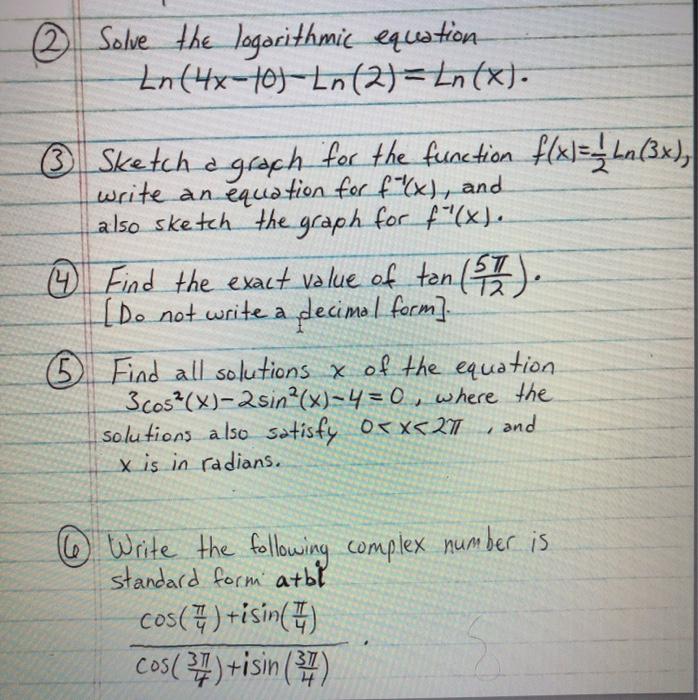 ② Solve the logarithmic equation
Ln(4x-10)-Ln(2)=Ln(x).
③ Sketch a graph for the function f(x)=½ Ln(3x),
write an equation for f⁻¹(x), and
also sketch the graph for f⁻¹(x).
④ Find the exact value of tan(5π/12).
[Do not write a decimal form].
⑤ Find all solutions x of the equation
3cos²(x)-2sin²(x)-4=0, where the
solutions also satisfy 0<x<2π, and
x is in radians.
⑥ Write the following complex number is
standard form a+bi
cos(π/4)+isin(π/4)
cos(3π/4)+isin(3π/4).